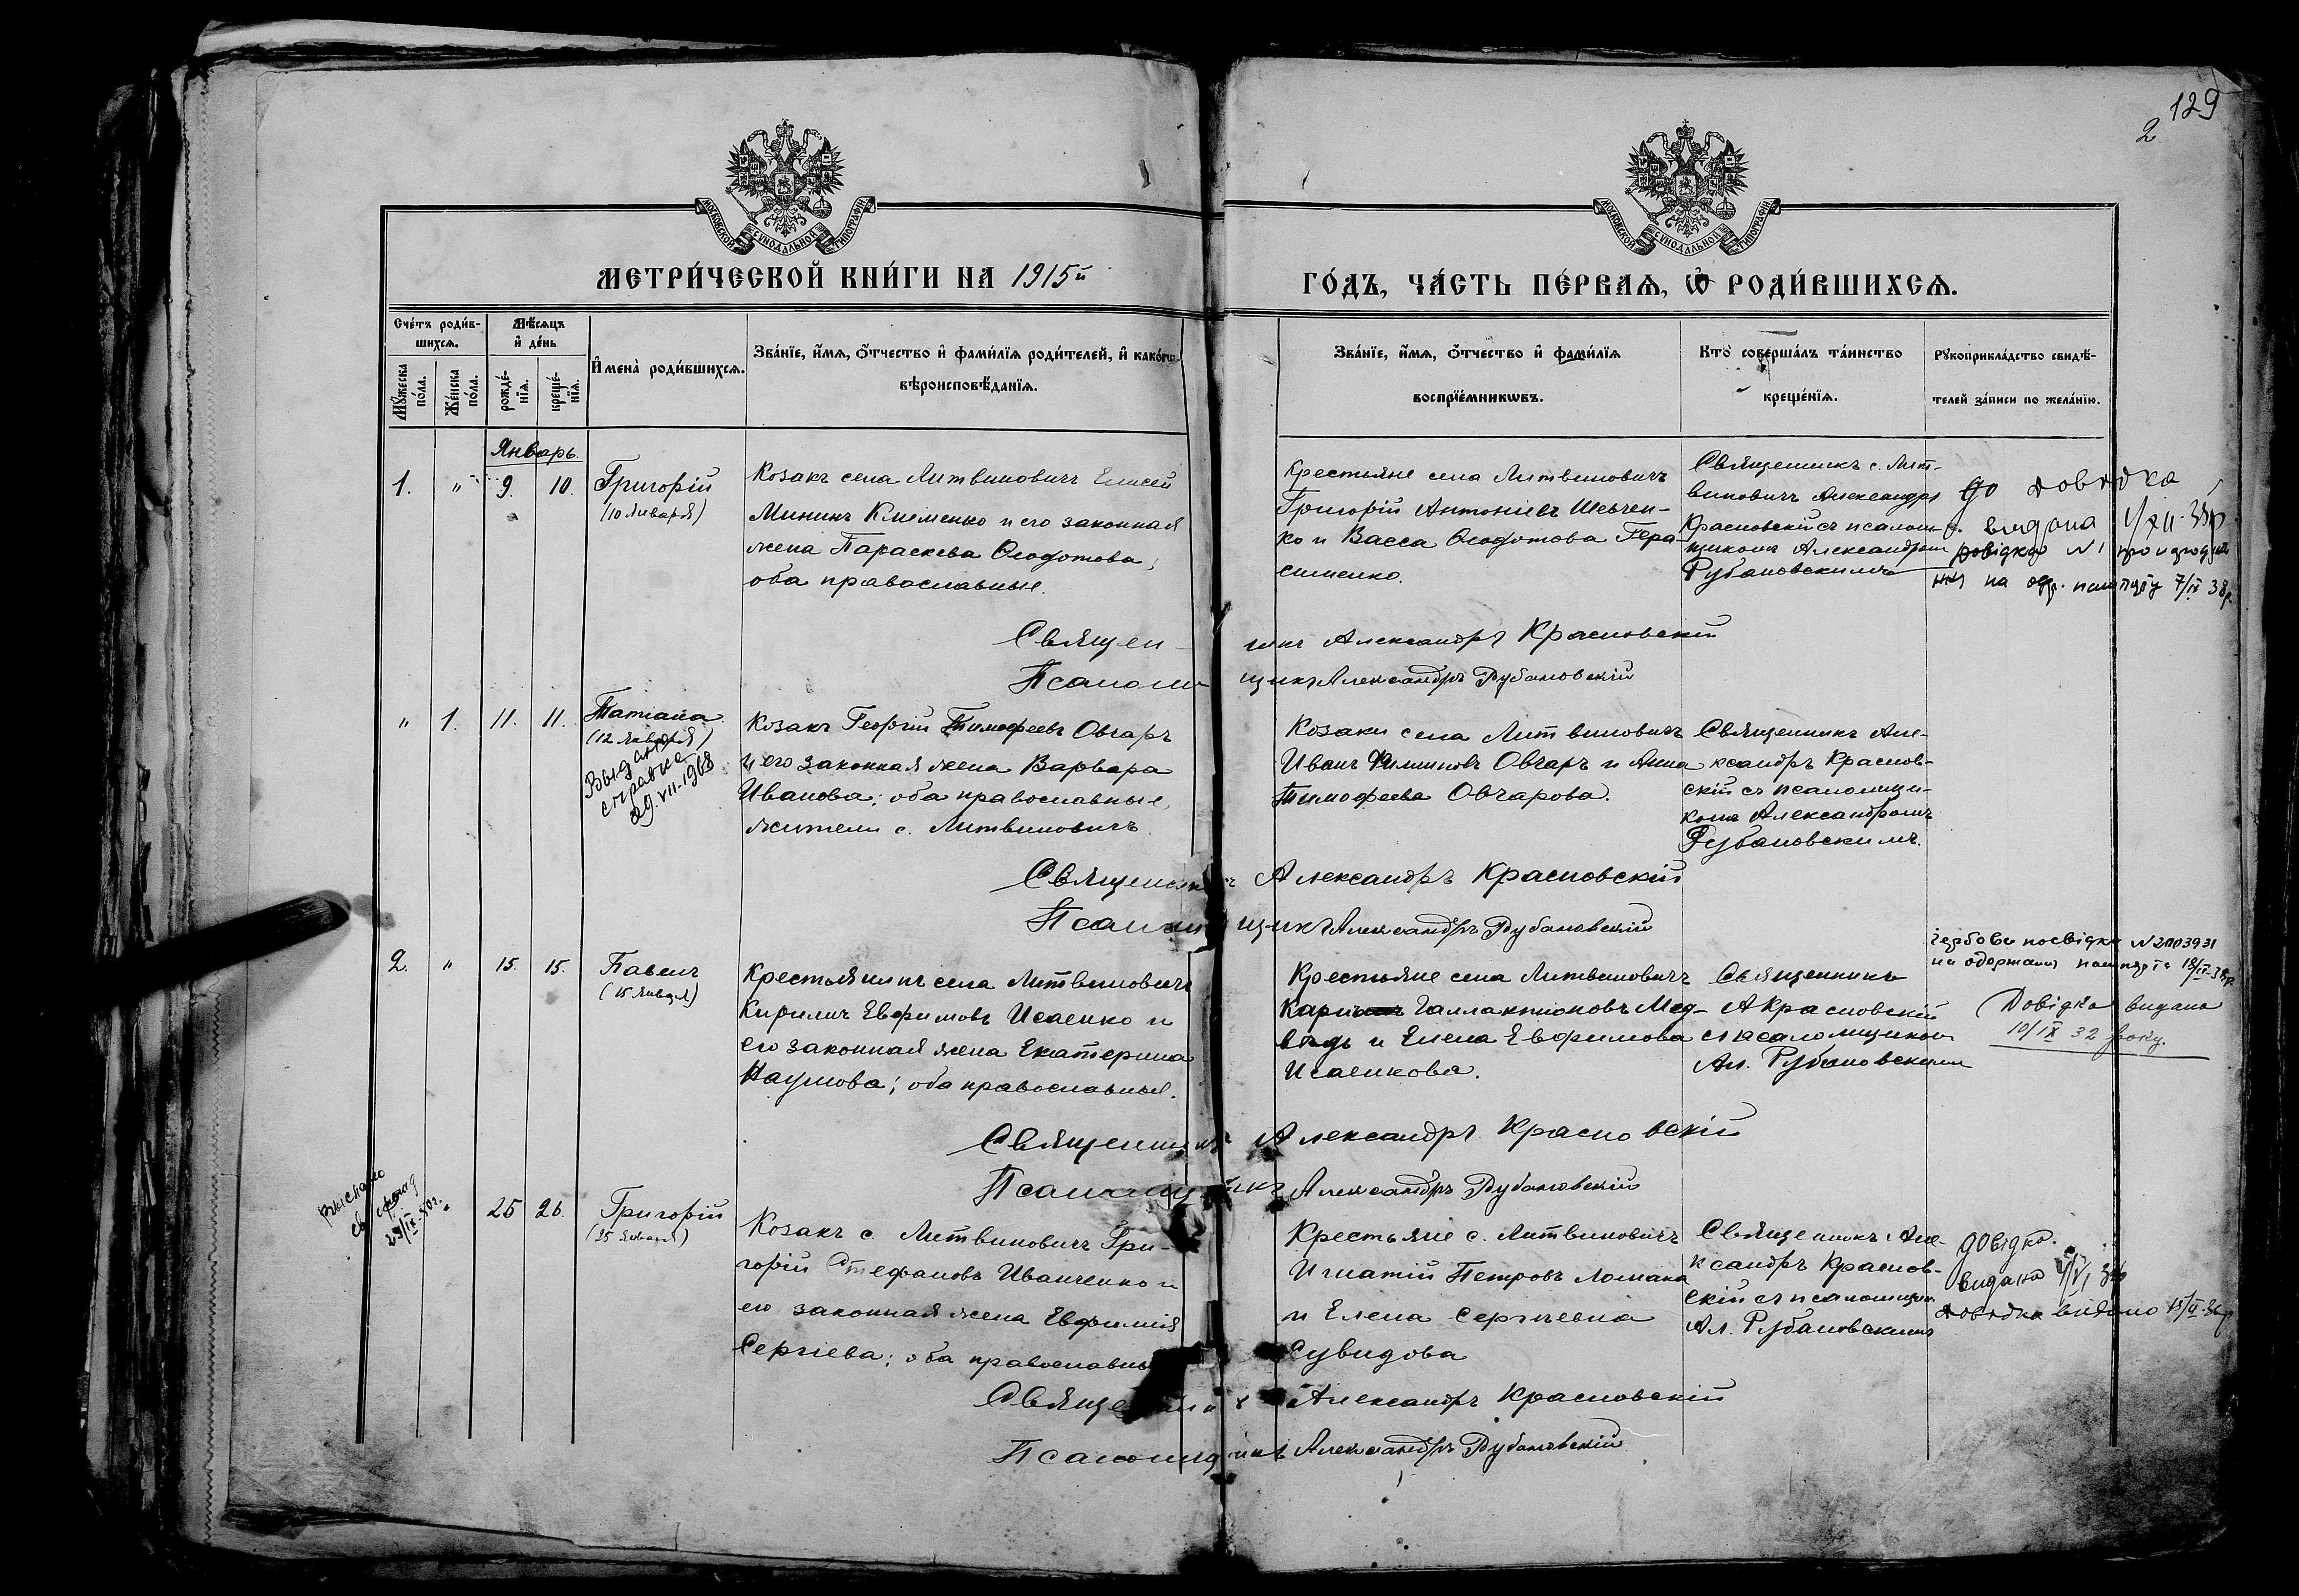 129
2
МОСКОВСКОЙ СУНОДАЛЬНОЙ ТИПОГРАФІИ
МОСКОВСКОЙ СУНОДАЛЬНОЙ ТИПОГРАФІИ
МЕТРИ́ЧЕСКОЙ КНИ́ГИ НА 1915й
ГО́ДЪ, ЧА́СТЬ ПЕ́РВАѦ, Ѡ҆ РОДИ́ВШИХСѦ.
Сче́тъ роди́в-
шихсѧ.
Мꙋ́жеска по́ла.
Же́нска по́ла.
Мѣ́сѧцъ
и҆ де́нь
рожде́-
нїѧ.
креще́-
нїѧ.
И҆мена̀ роди́вшихсѧ.
Зва́нїе, и҆́мѧ, ѻ҆́тчество и҆ фами́лїѧ роди́телей, и҆ како́гѡ
вѣроисповѣ́данїѧ.
Зва́нїе, и҆́мѧ, ѻ҆́тчество и҆ фами́лїѧ
воспрїе́мникѡвъ.
Кто̀ соверша́лъ та́инство
креще́нїѧ.
Рꙋкоприкла́дство свидѣ́-
телей за́писи по жела́нїю.
Январь.
1. " 9. 10.
Григорій
(10 Января)
Козакъ села Литвиновичъ Елисей
Мининъ Клименко и его законная
жена Параскева Ѳеодотова,
оба православные.
Крестьяне села Литвиновичъ
Григорій Антоніевъ Шевчен-
ко и Васса Ѳеодотова Гера-
сименко.
Священникъ с. Лит-
виновичъ Александръ
Красновскій съ псалом-
щикомъ Александромъ
Рубановскимъ
довідка
видана
довідка №1
на од. пашпорту 7/IX 38р.
Священ-
никъ Александръ Красновскій
Псалом-
щикъ Александръ Рубановскій
" 1. 11. 11.
Татіана
(12 Января)
Выдана
справка
29.VII-1968
Козакъ Георгій Тимофеевъ Овчаръ
и его законная жена Варвара
Иванова; оба православные,
жители с. Литвиновичъ.
Козаки села Литвиновичъ
Иванъ Филиповъ Овчаръ и Анна
Тимофеева Овчарова.
Священникъ Але-
ксандръ Краснов-
скій съ псаломщи-
комъ Александромъ
Рубановскимъ.
Священникъ Александръ Красновскій
Псаломщикъ Александръ Рубановскій
2. " 15. 15.
Павелъ
(15 Января)
Крестьянинъ села Литвиновичъ
Кириллъ Евфимовъ Исаенко и
его законная жена Екатерина
Наумова; оба православные.
Крестьяне села Литвиновичъ
Галлактіоновъ Мед-
вѣдь и Елена Евфимова
Исаенкова.
Священникъ
А Красновскій
съ псаломщикомъ
Ал. Рубановскимъ
на одержання пашпорта 18/IX-38р.
Довідка видана
10/IX 32 року.
Священникъ Александръ Красновскій
Псаломщикъ Александръ Рубановскій
" 25 26.
Григорій
(25 Января)
Козакъ с. Литвиновичъ Гри-
горій Стефановъ Иванченко и
его законная жена Евфимія
Сергіева; оба православные
Крестьяне с. Литвиновичъ
Игнатій Петровъ Ломака
и Елена Сергіевна
Сувидова
Священникъ Але-
ксандръ Краснов-
скій съ псаломщик.
Ал. Рубановскимъ
довідка
видана
довідка видано
Священникъ Александръ Красновскій
Псаломщикъ Александръ Рубановскій